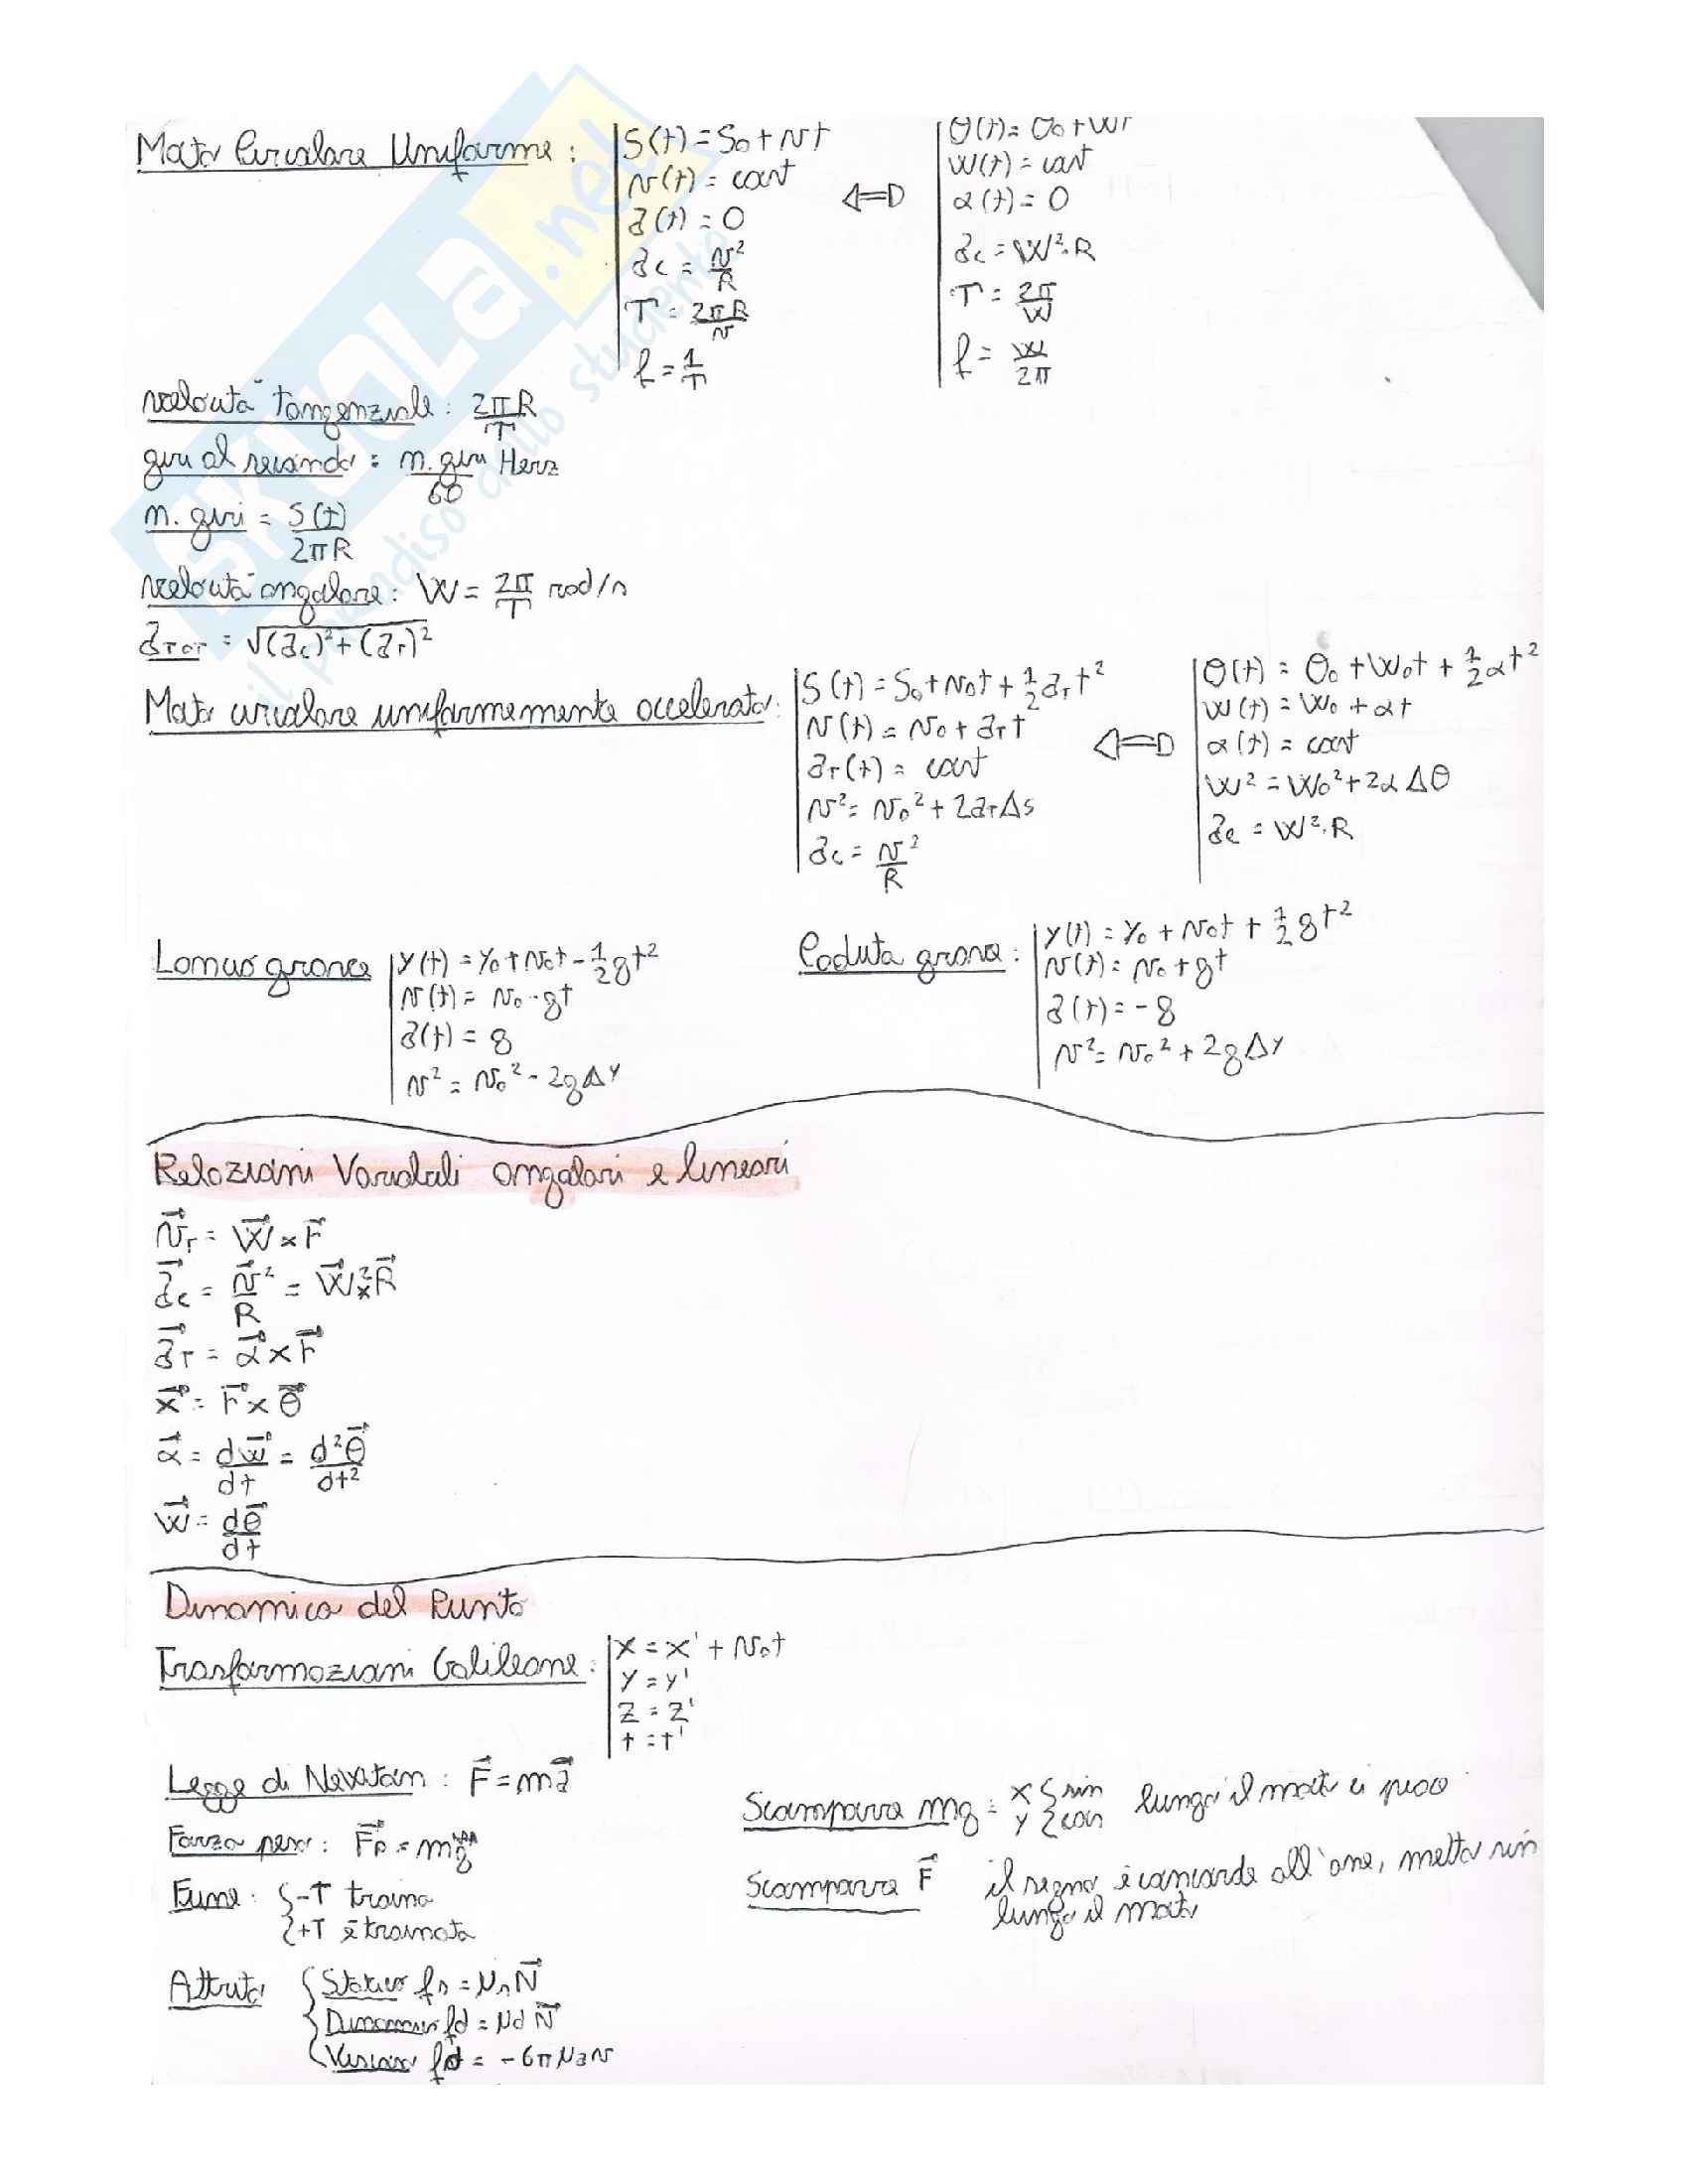 Moto Circolare Uniforme : S(t) = S₀ + vt
v(t) = cost
a(t) = 0
ac = v²/R
T = 2πR/v
f = 1/T
⇔
θ(t) = θ₀ + Wt
W(t) = cost
α(t) = 0
ac = W²·R
T = 2π/W
f = W/2π
velocità tangenziale : 2πR/T
giri al secondo = n. giri/60 Herz
n. giri = S(t)/2πR
velocità angolare : W = 2π/T rad/s
aTOT = √(ac)² + (aT)²
Moto circolare uniformemente accelerato : S(t) = S₀ + v₀t + 1/2 aTt²
v(t) = v₀ + aTt
aT(t) = cost
v² = v₀² + 2aTΔs
ac = v²/R
⇔
θ(t) = θ₀ + W₀t + 1/2 αt²
W(t) = W₀ + αt
α(t) = cost
W² = W₀² + 2αΔθ
ac = W²·R
Lancio grave y(t) = y₀ + v₀t - 1/2 gt²
v(t) = v₀ - gt
a(t) = g
v² = v₀² - 2gΔy
Caduta grave : y(t) = y₀ + v₀t + 1/2 gt²
v(t) = v₀ + gt
a(t) = -g
v² = v₀² + 2gΔy
Relazioni Variabili angolari e lineari
v⃗T = W⃗ × r⃗
a⃗c = v⃗²/R = W⃗² × R⃗
a⃗T = α⃗ × r⃗
x⃗ = r⃗ × θ⃗
α⃗ = dw⃗/dt = d²θ⃗/dt²
W⃗ = dθ⃗/dt
Dinamica del Punto
Trasformazioni Galileane : x = x' + v₀t
y = y'
z = z'
t = t'
Legge di Newton : F⃗ = ma⃗
Forza peso : F⃗p = mg⃗
Fune : { -T traina
+T è trainata
Attrito { Statico fs = μs N⃗
Dinamico fd = μd N⃗
Viscoso fd = -6πμav
Scomporre mg : x { sin lungo il moto ci
y { cos
Scomporre F⃗ il segno è concorde all'asse, metto sin
lungo il moto
SKUOLA.net
il paradiso dello studente